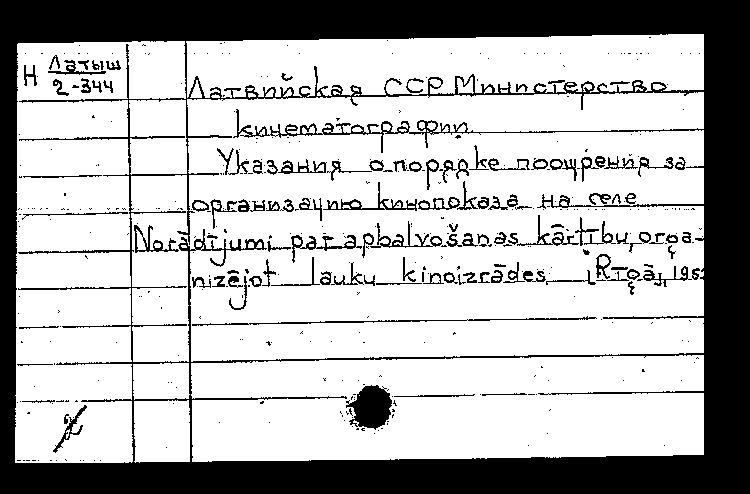 Н Латыш
2-344
Латвийская ССР Министерство
кинематографии.
Указания о порядке поощрения за
организацию кинопоказа на селе
Norādījumi par apbalvošanas kārtību, orga-
nizējot lauku kinoizrādes.